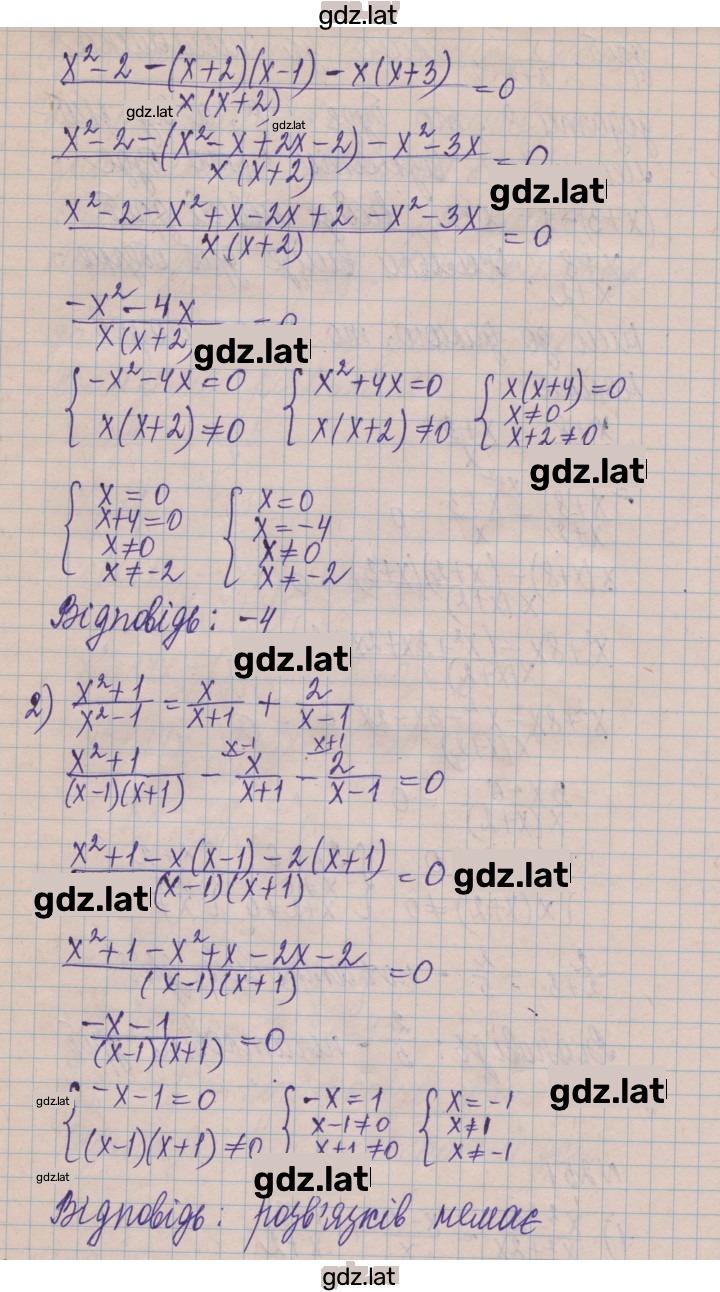 gdz.lat
x² - 2 - (x+2)(x-1) - x(x+3) / x(x+2) = 0
gdz.lat
gdz.lat
x² - 2 - (x² - x + 2x - 2) - x² - 3x / x(x+2) = 0
gdz.lat
x² - 2 - x² + x - 2x + 2 - x² - 3x / x(x+2) = 0
-x² - 4x / x(x+2) = 0
gdz.lat
{ -x² - 4x = 0 { x² + 4x = 0 { x(x+4) = 0
x(x+2) ≠ 0 x(x+2) ≠ 0 x ≠ 0
x+2 ≠ 0
gdz.lat
{ x = 0 { x = 0
x+4 = 0 x = -4
x ≠ 0 x ≠ 0
x ≠ -2 x ≠ -2
Відповідь: -4
gdz.lat
2) x²+1 / x²-1 = x / x+1 + 2 / x-1
x²+1 / (x-1)(x+1) - x-1 x / x+1 - x+1 2 / x-1 = 0
x²+1 - x(x-1) - 2(x+1) / (x-1)(x+1) = 0
gdz.lat
gdz.lat
x²+1 - x² + x - 2x - 2 / (x-1)(x+1) = 0
-x-1 / (x-1)(x+1) = 0
gdz.lat
gdz.lat
{ -x-1 = 0 { -x = 1 { x = -1
x-1 ≠ 0 x ≠ 1
(x-1)(x+1) ≠ 0 x+1 ≠ 0 x ≠ -1
gdz.lat
gdz.lat
Відповідь: розв'язків немає
gdz.lat